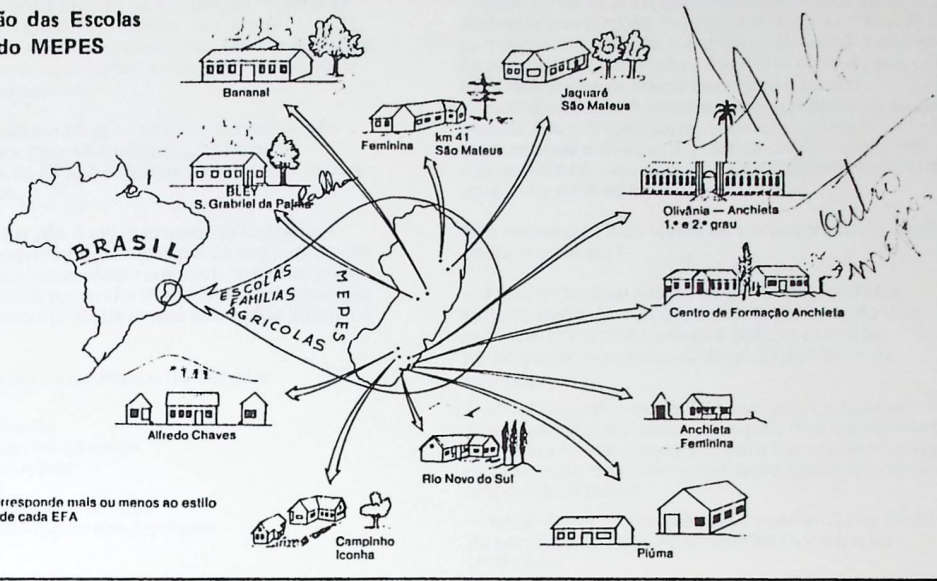 ão das Escolas
do MEPES
Bananal
Feminina
km 41
São Mateus
Jaguaré
São Mateus
BLEY
S. Grabriel da Palha
Olivânia — Anchieta
1.º e 2.º grau
outro
BRASIL
ESCOLAS
FAMILIAS
AGRICOLAS
MEPES
Centro de Formação Anchieta
Alfredo Chaves
Anchieta
Feminina
Rio Novo do Sul
rresponde mais ou menos ao estilo
de cada EFA
Campinho
Iconha
Piúma